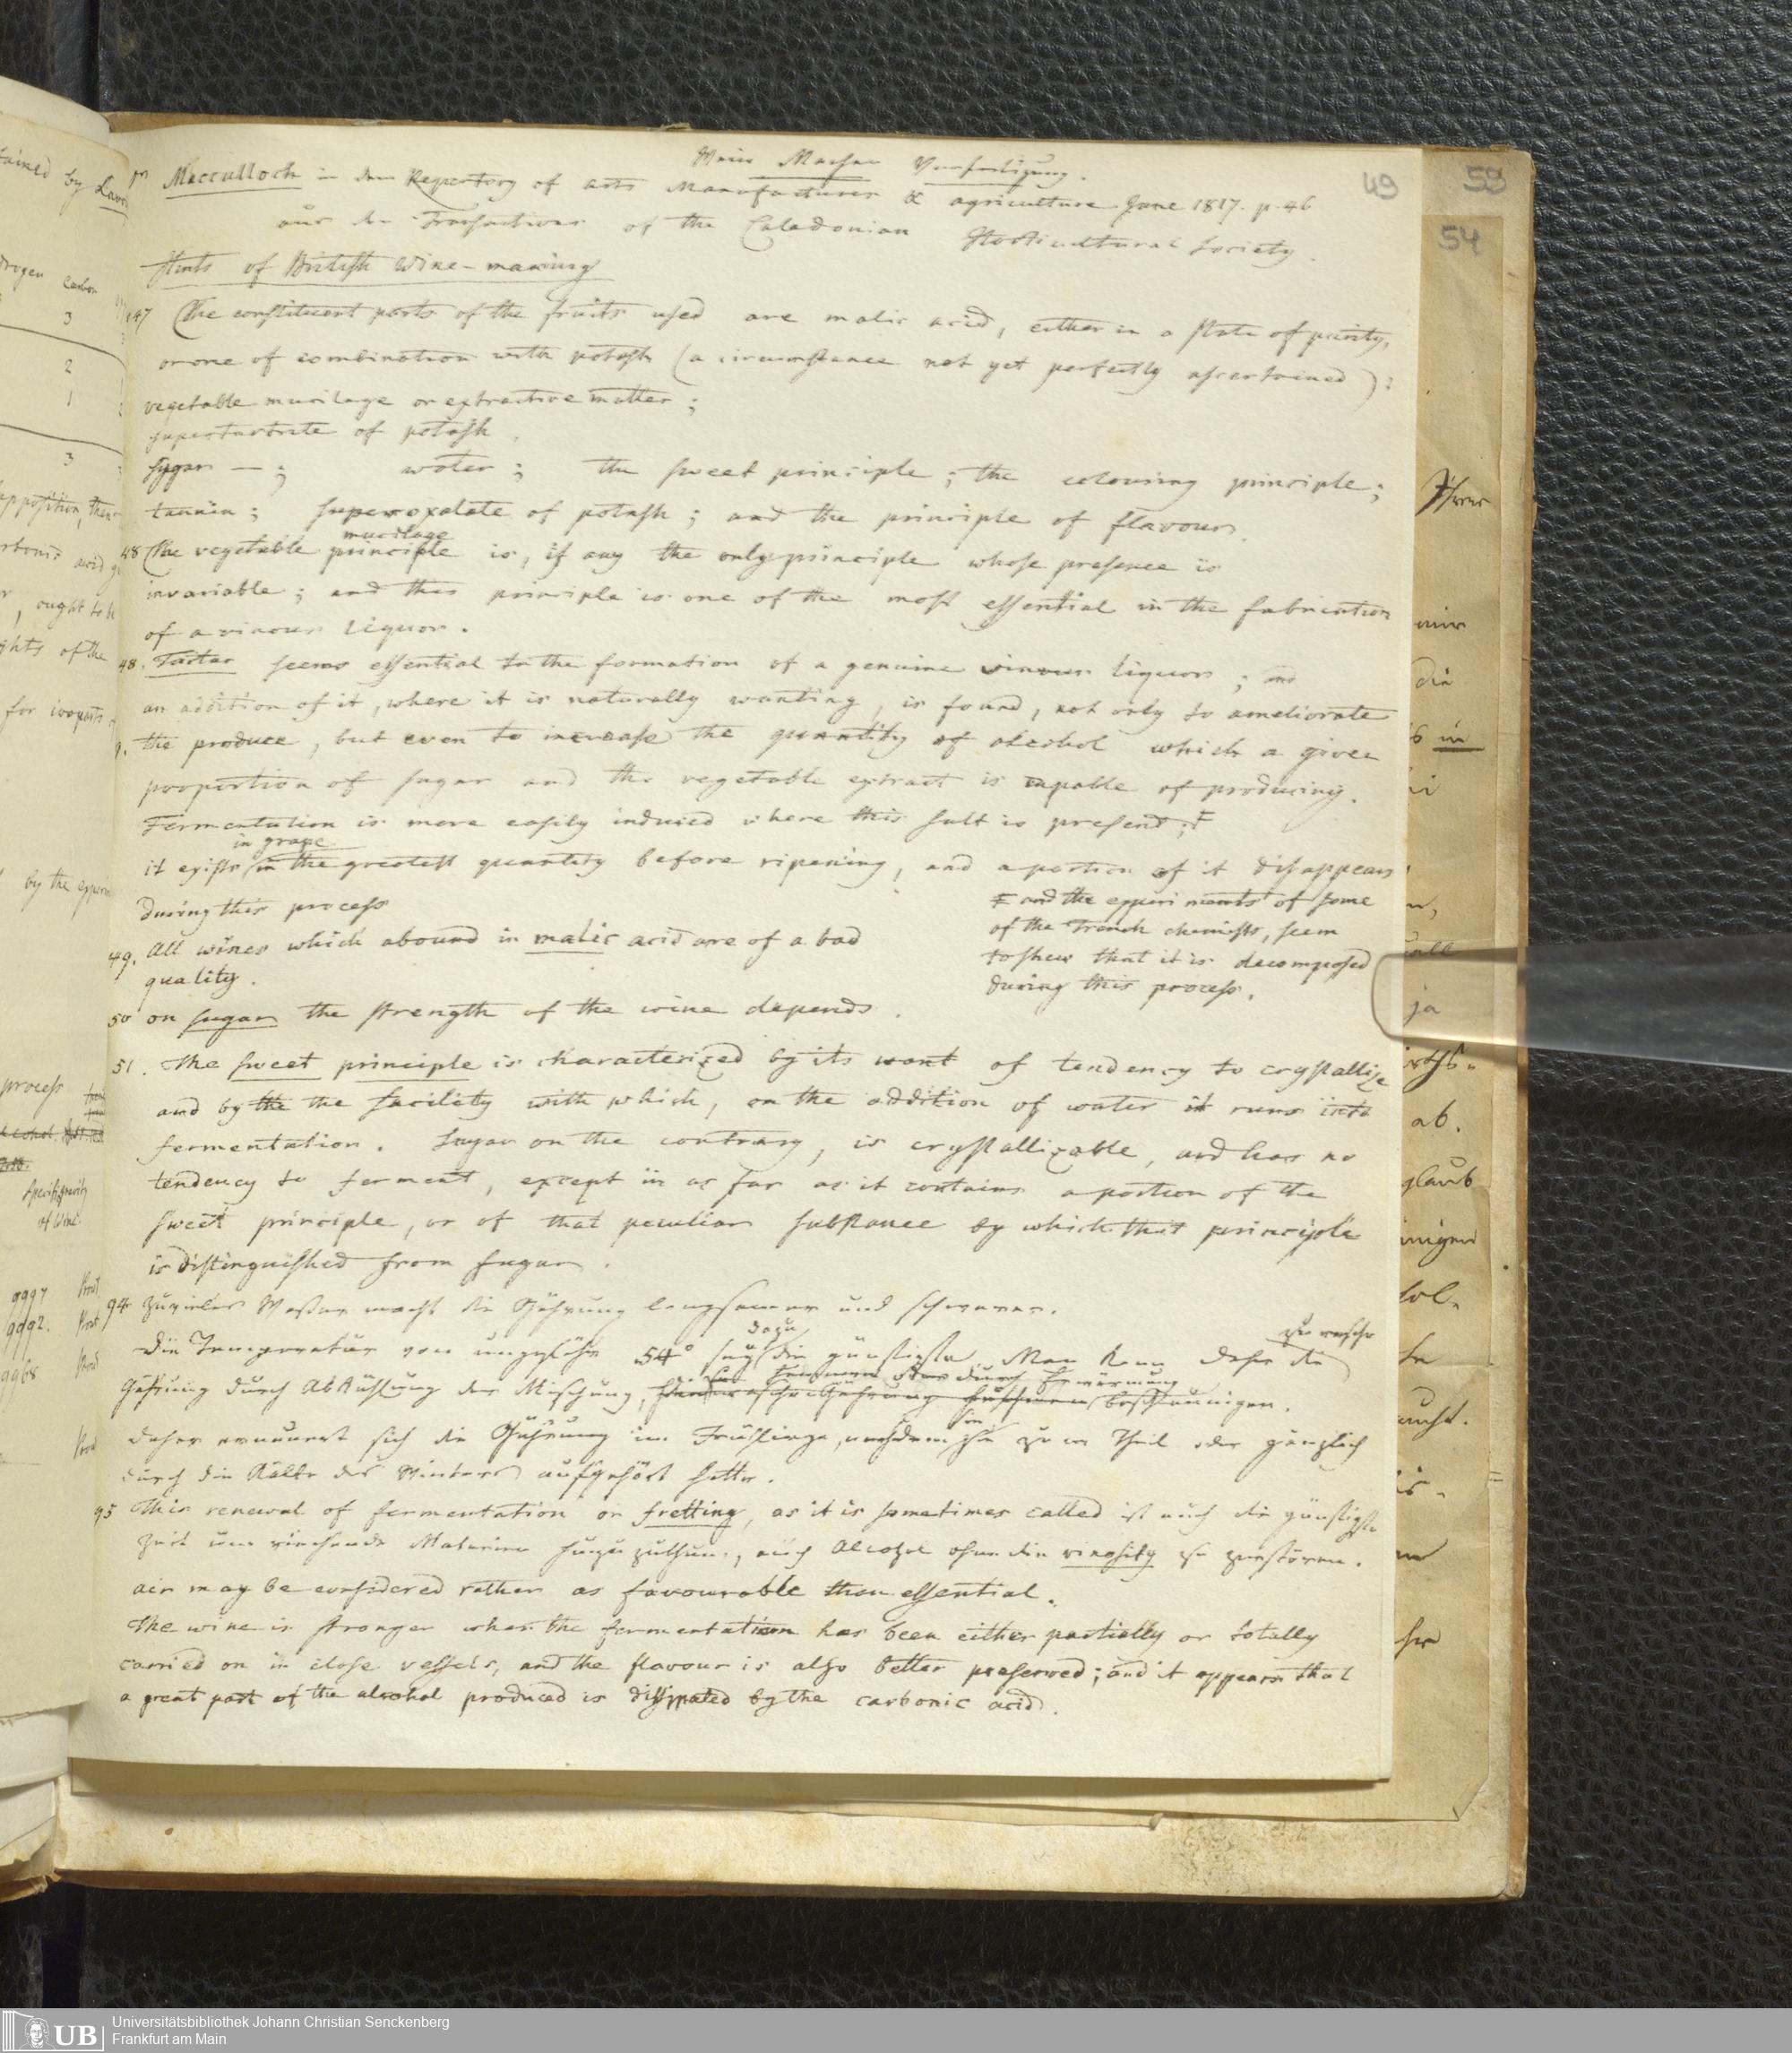 Wein Machen Verfertigung.
Macculloch in dem Repertory of arts Manufactures & agriculture June 1817. p. 46
49
59
aus den Transactions of the Caledonian Horticultural Society.
54
Hints of British Wine-making
47 The constituent parts of the fruits used are malic acid, either in a state of purity,
or one of combination with potash (a circumstance not yet perfectly ascertained):
vegetable mucilage or extractive matter;
supertartrite of potash,
sugar — ; water; the sweet principle; the colouring principle;
tannin; superoxalate of potash; and the principle of flavour.
mucilage
48 The vegetable principle is, if any the only principle whose presence is
invariable; and this principle is one of the most essential in the fabrication
of a vinous liquor.
48. Tartar seems essential to the formation of a genuine vinous liquor; and
an addition of it, where it is naturally wanting, is found, not only to ameliorate
9. the produce, but even to increase the quantity of alcohol which a given
proportion of sugar and the vegetable extract is capable of producing.
Fermentation is more easily induced where this salt is present;
in grape
it exists in the greatest quantity before ripening, and a portion of it disappears
during this process
and the experiments of some
of the French chemists, seem
to shew that it is decomposed
during this process.
49. All wines which abound in malic acid are of a bad
quality.
50 on sugar the strength of the wine depends.
51. The sweet principle is characterized by its want of tendency to crystallize
and by the the facility with which, on the addition of water it runs into
fermentation. Sugar on the contrary, is crystallizable, and has no
tendency to ferment, except in as far as it contains a portion of the
sweet principle, or of that peculiar substance by which that principle
is distinguished from sugar.
94 zu vieles Wasser macht die Gährung langsamer und schwerer.
dazu
zu rasche
Die Temperatur von ungefähr 54° sey die günstigste. Man kann daher die
hemmen oder durch Erwärmung
Gährung durch Abkühlung der Mischung, beschleunigen.
sie
daher erneuert sich die Gährung im Frühlinge, nachdem sie zum Theil oder gänzlich
durch die Kälte des Winters aufgehört hatte.
95 This renewal of fermentation or fretting, as it is sometimes called ist auch die günstigste
Zeit um riechende Materien hinzuzuthun, auch Alcohol ohne die vinosity zu zerstören.
air may be considered rather as favourable than essential.
The wine is stronger when the fermentation has been either partially or totally
carried on in close vessels, and the flavour is also better preserved; and it appears that
a great part of the alcohol produced is dissipated by the carbonic acid.
UB Universitätsbibliothek Johann Christian Senckenberg
Frankfurt am Main